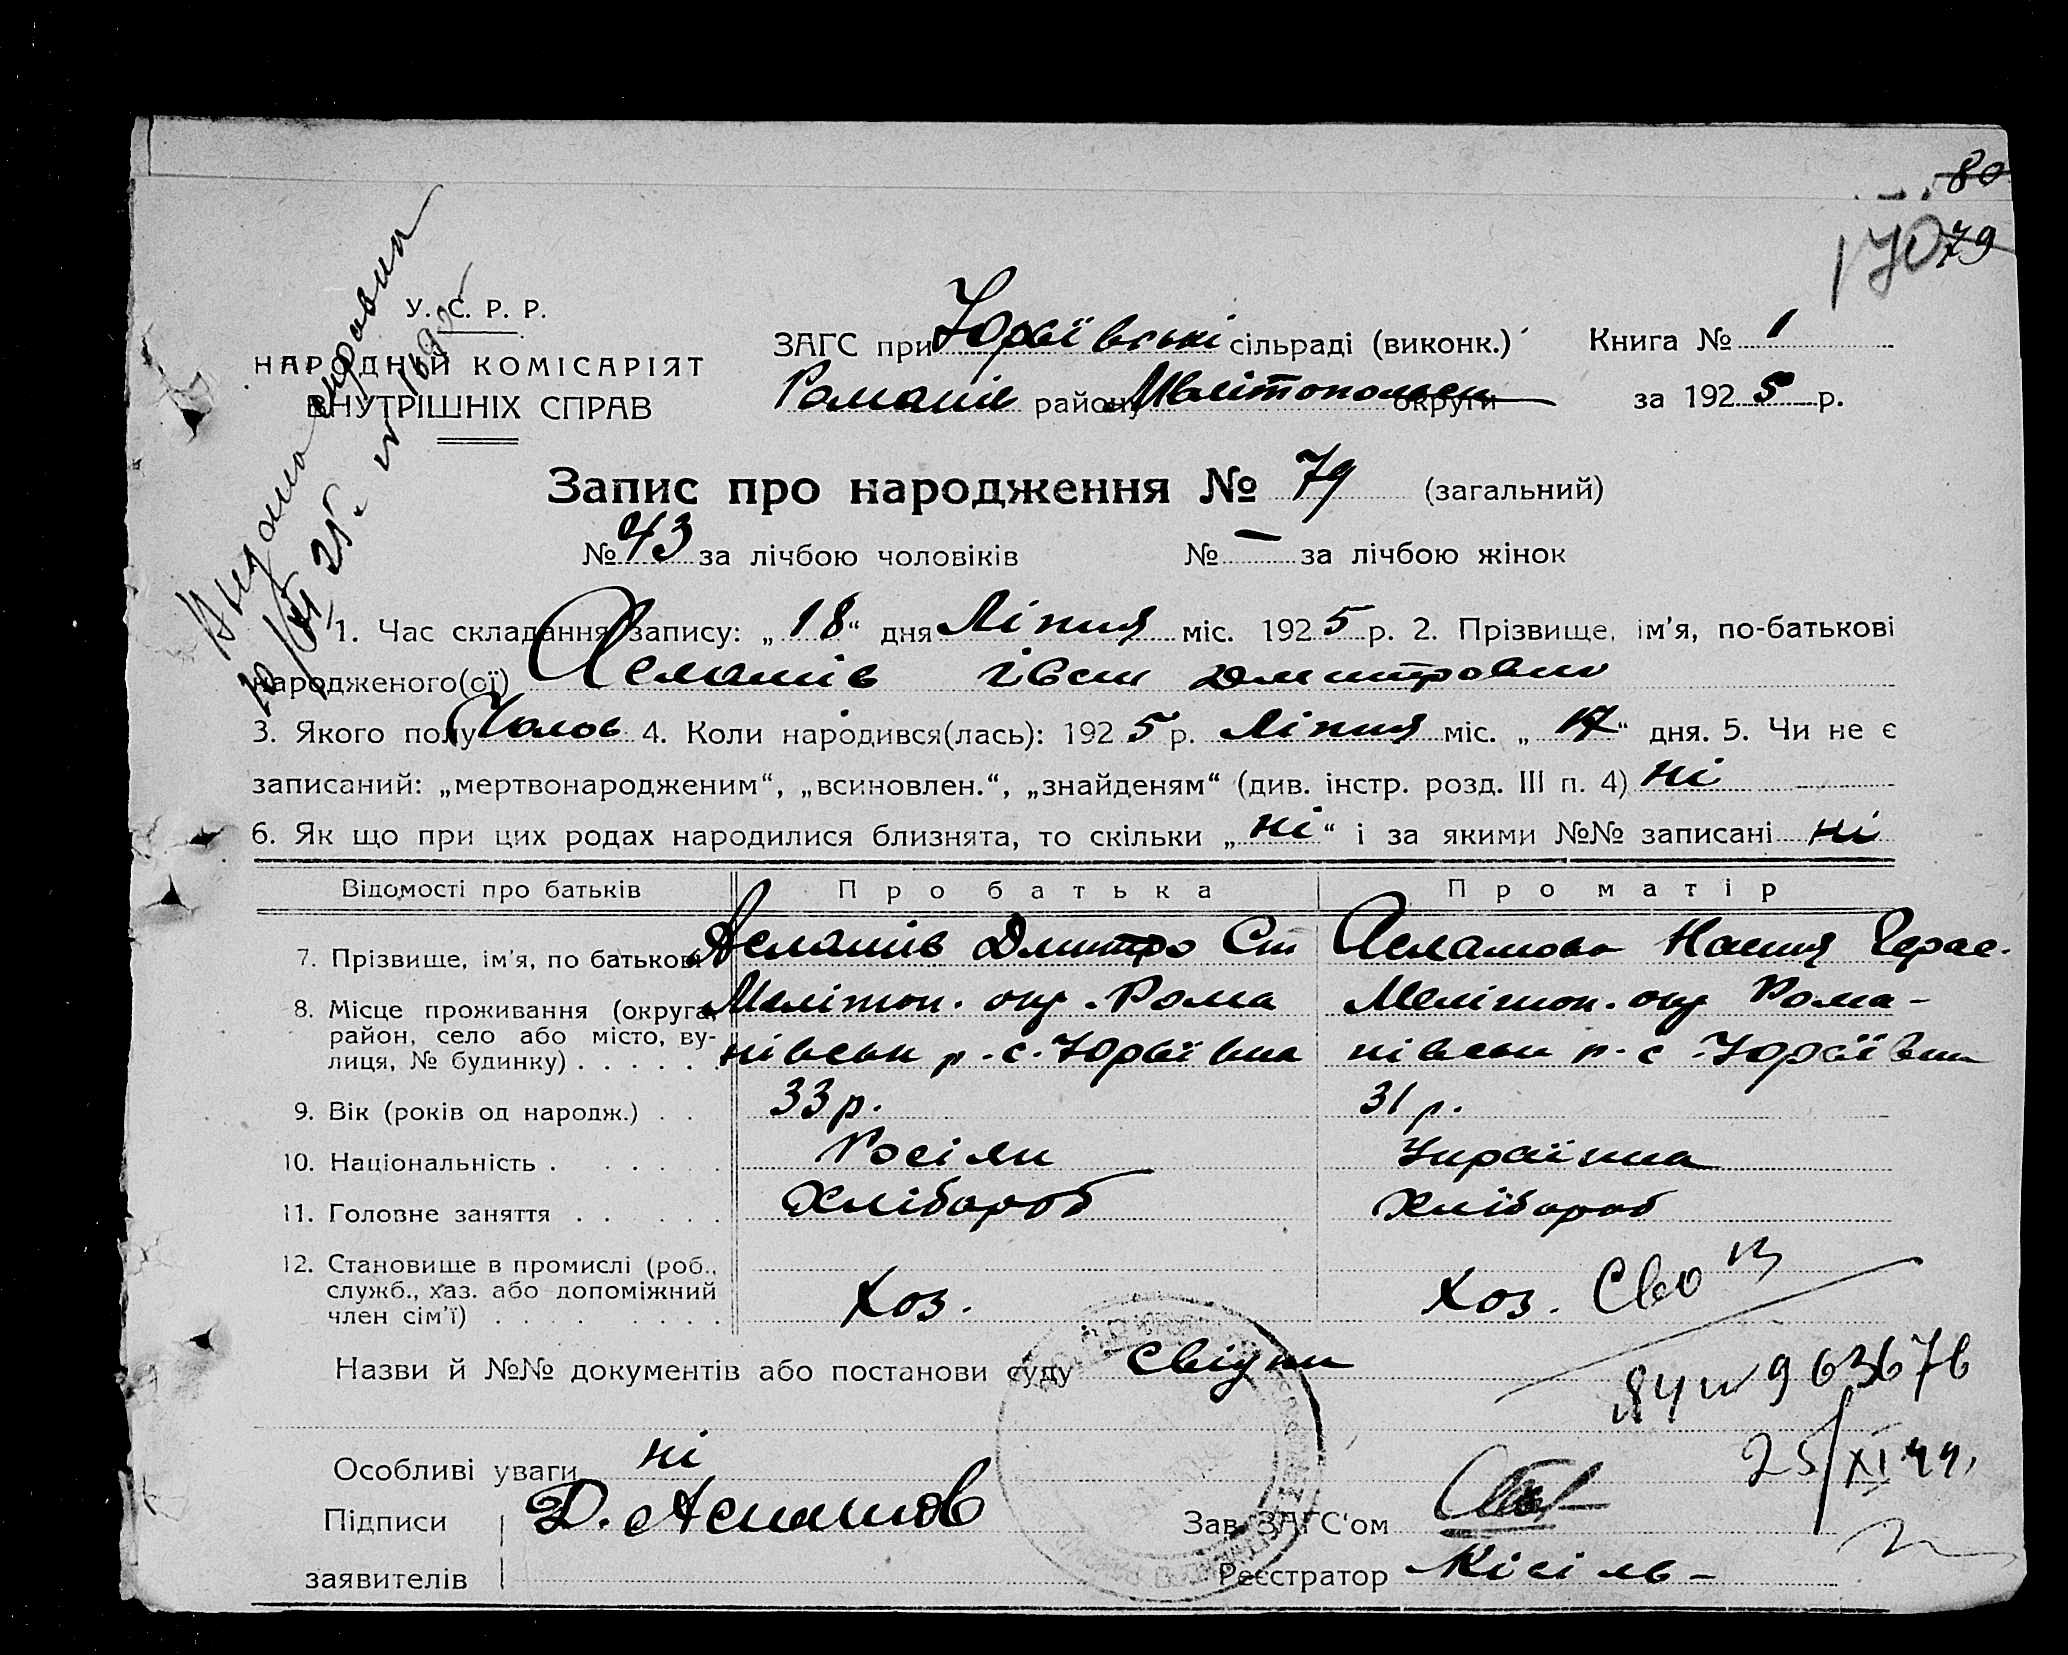 80
170 79
У. С. Р. Р.
НАРОДНИЙ КОМІСАРІЯТ
ВНУТРІШНІХ СПРАВ
ЗАГС при Юріївські сільраді (виконк.) Книга № 1
Романів району Мелітопольськ округи за 1925 р.
Запис про народження № 79 (загальний)
№ 43 за лічбою чоловіків № — за лічбою жінок
1. Час складання запису: „18“ дня Ліпня міс. 1925 р. 2. Прізвище, ім'я, по-батькові
народженого(ої) Асланів Іван Дмитрович
3. Якого полу Чолов 4. Коли народився(лась): 1925 р. Ліпня міс. „17“ дня. 5. Чи не є
записаний: „мертвонародженим“, „всиновлен.“, „знайденям“ (див. інстр. розд. III п. 4) ні
6. Як що при цих родах народилися близнята, то скільки „ні“ і за якими №№ записані ні
Відомості про батьків Про батька Про матір
7. Прізвище, ім'я, по батькові Асланів Дмитро Ст Асланова Нация Герас.
8. Місце проживання (округа, Мелітоп. окр. Рома Мелітоп. окр Рома-
район, село або місто, ву-
лиця, № будинку) . . . . . . нівськ р. с. Юріївка нівськ р. с. Юріївка
9. Вік (років од народж.) . . 33 р. 31 р.
10. Національність . . . . . . Росіян Українка
11. Головне заняття . . . . . Хлібороб Хлібороб
12. Становище в промислі (роб.,
служб., хаз. або допоміжний
член сім'ї) . . . . . . . . Хоз. Хоз. Сво
Назви й №№ документів або постанови суду свідки
963676
25/XI 44.
Особливі уваги ні
Підписи Д. Асланов Зав. ЗАГС'ом
заявителів Реєстратор Кісіль